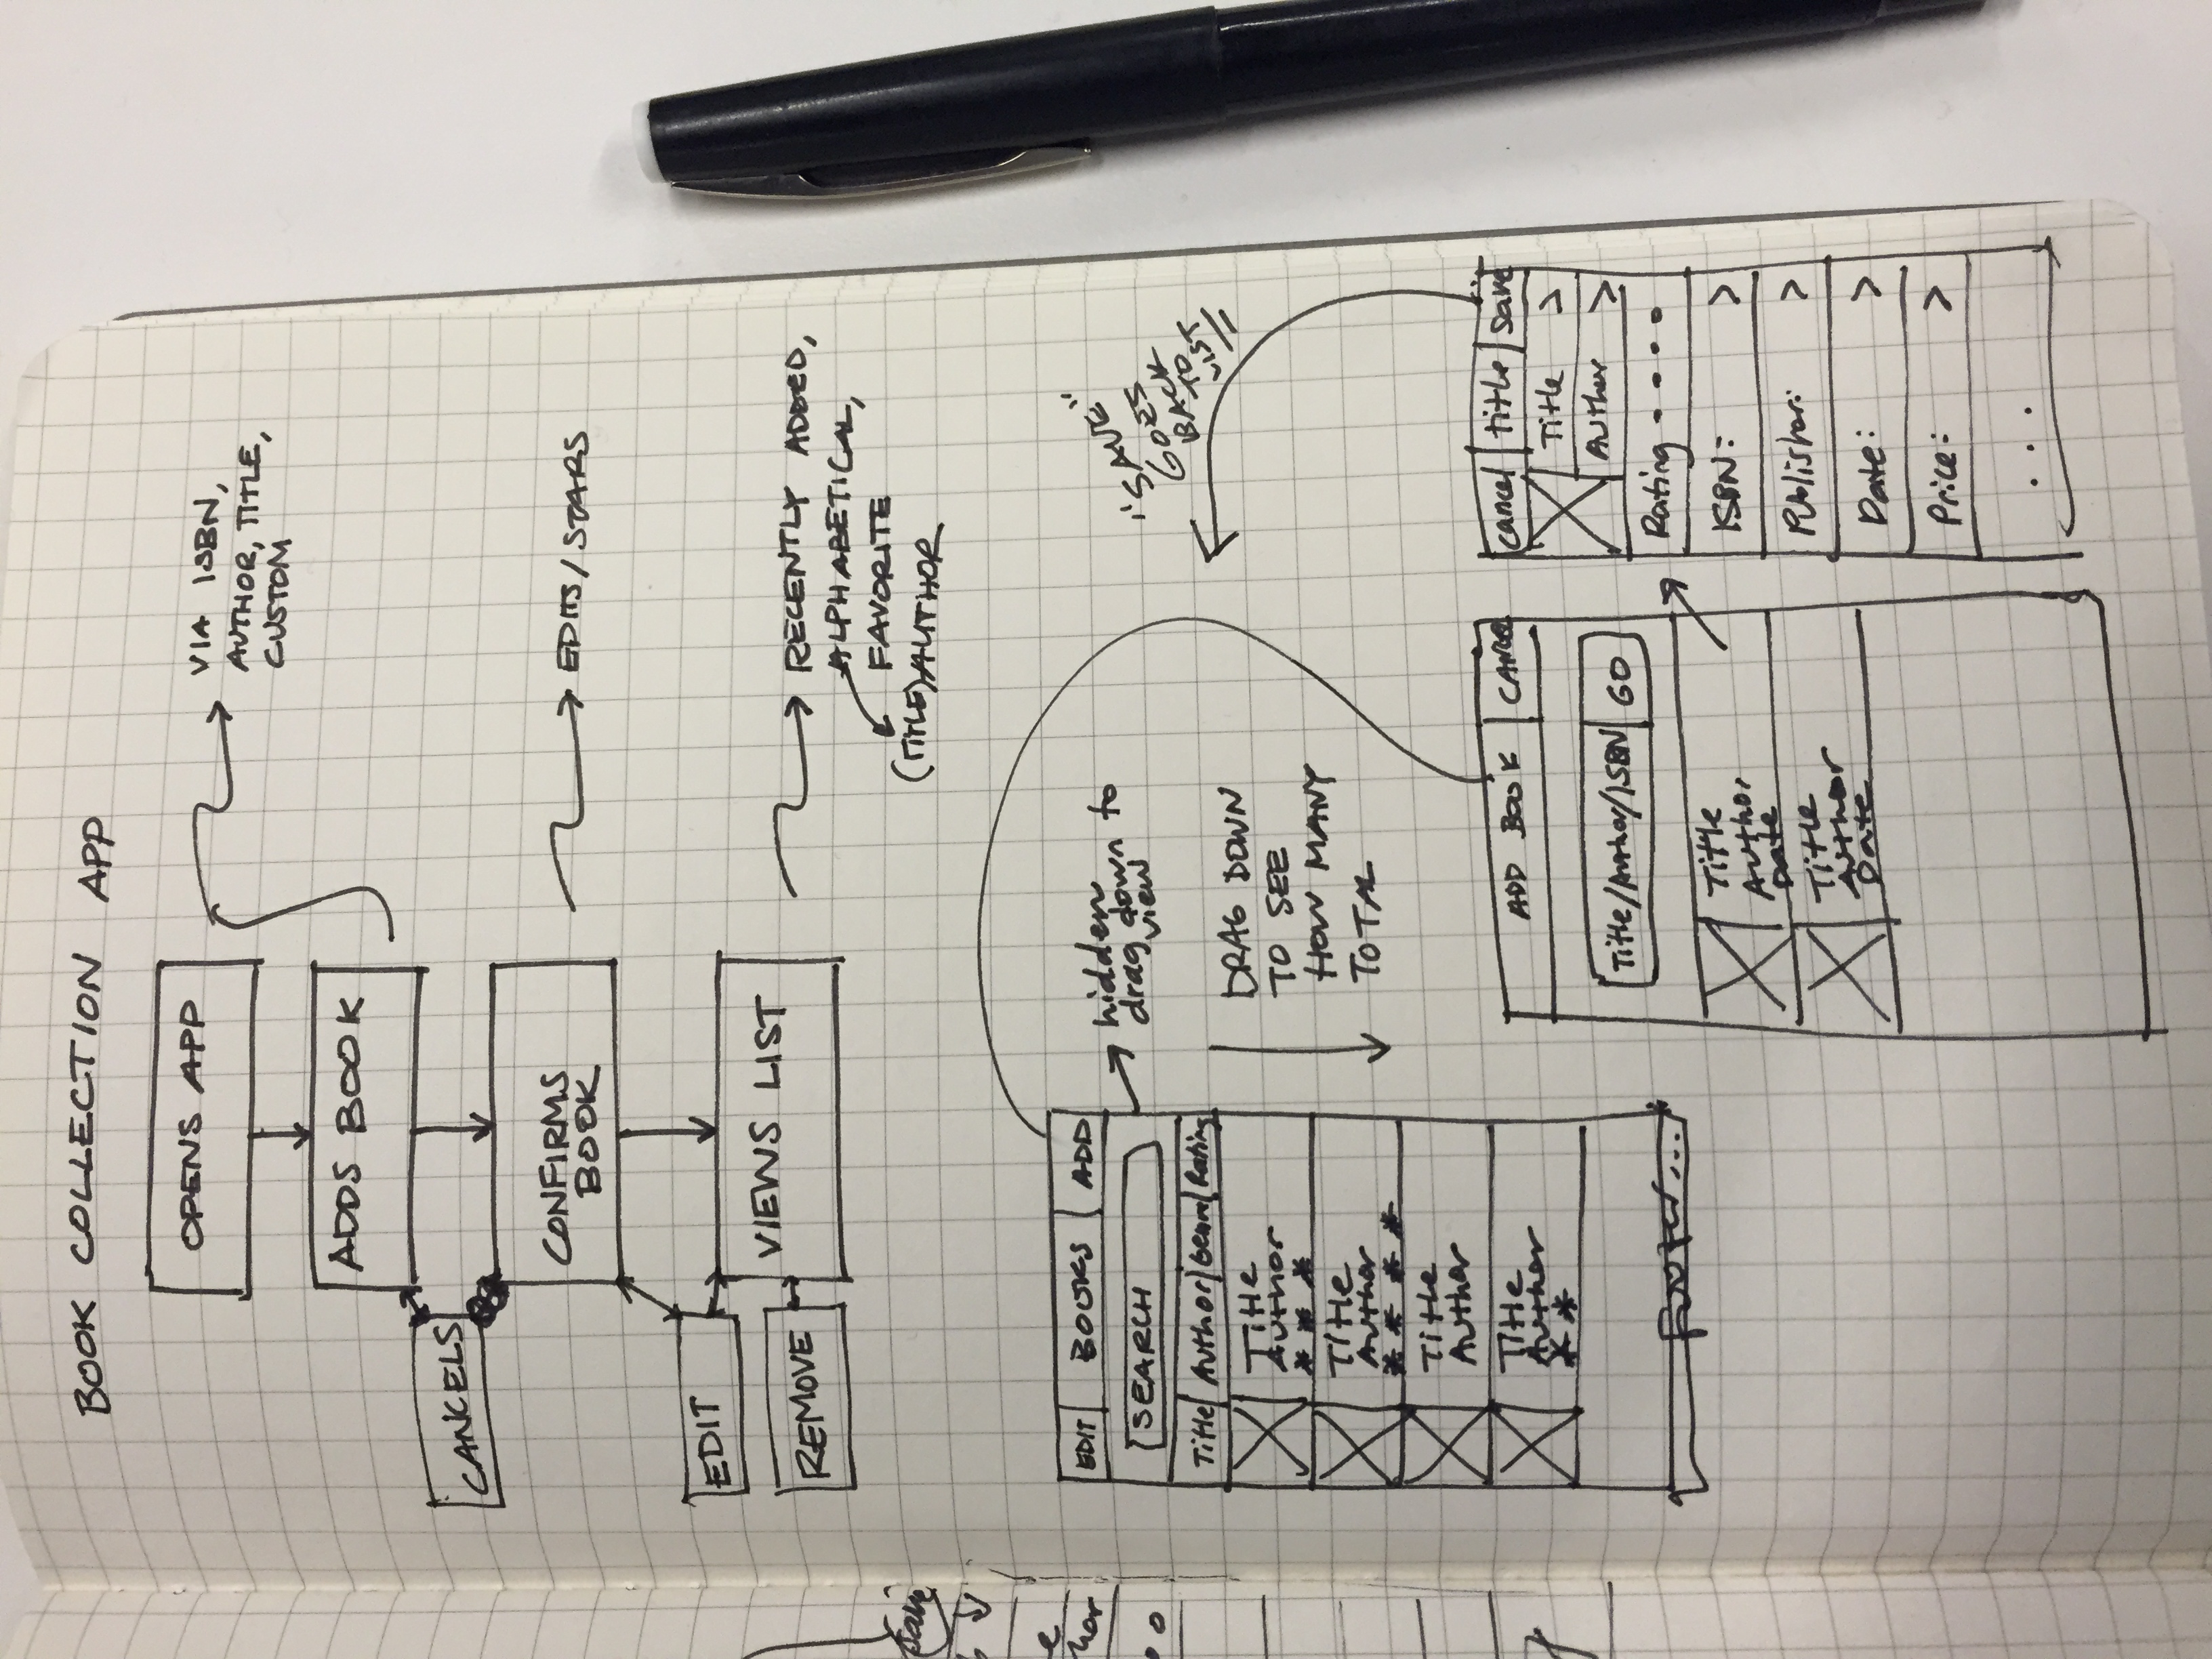 BOOK COLLECTION APP
OPENS APP
VIA ISBN,
AUTHOR, TITLE,
CUSTOM
ADDS BOOK
CANCELS
CONFIRMS
BOOK
EDITS/STARS
EDIT
VIEWS LIST
REMOVE
RECENTLY ADDED,
ALPHABETICAL,
FAVORITE
(TITLE) AUTHOR
EDIT BOOKS ADD
SEARCH
hidden
drag down to
view
Title Author Genre Rating
Title
Author
* * *
Title
Author
* * * *
Title
Author
Title
Author
* *
Footer...
DRAG DOWN
TO SEE
HOW MANY
TOTAL
"SAVE"
GOES
BACK
TO
LIST
ADD BOOK CANCEL
Title/Author/ISBN GO
Title
Author
Date
Title
Author
Date
cancel title save
Title >
Author >
Rating • • • •
ISBN: >
Publisher: >
Date: >
Price: >
...
save